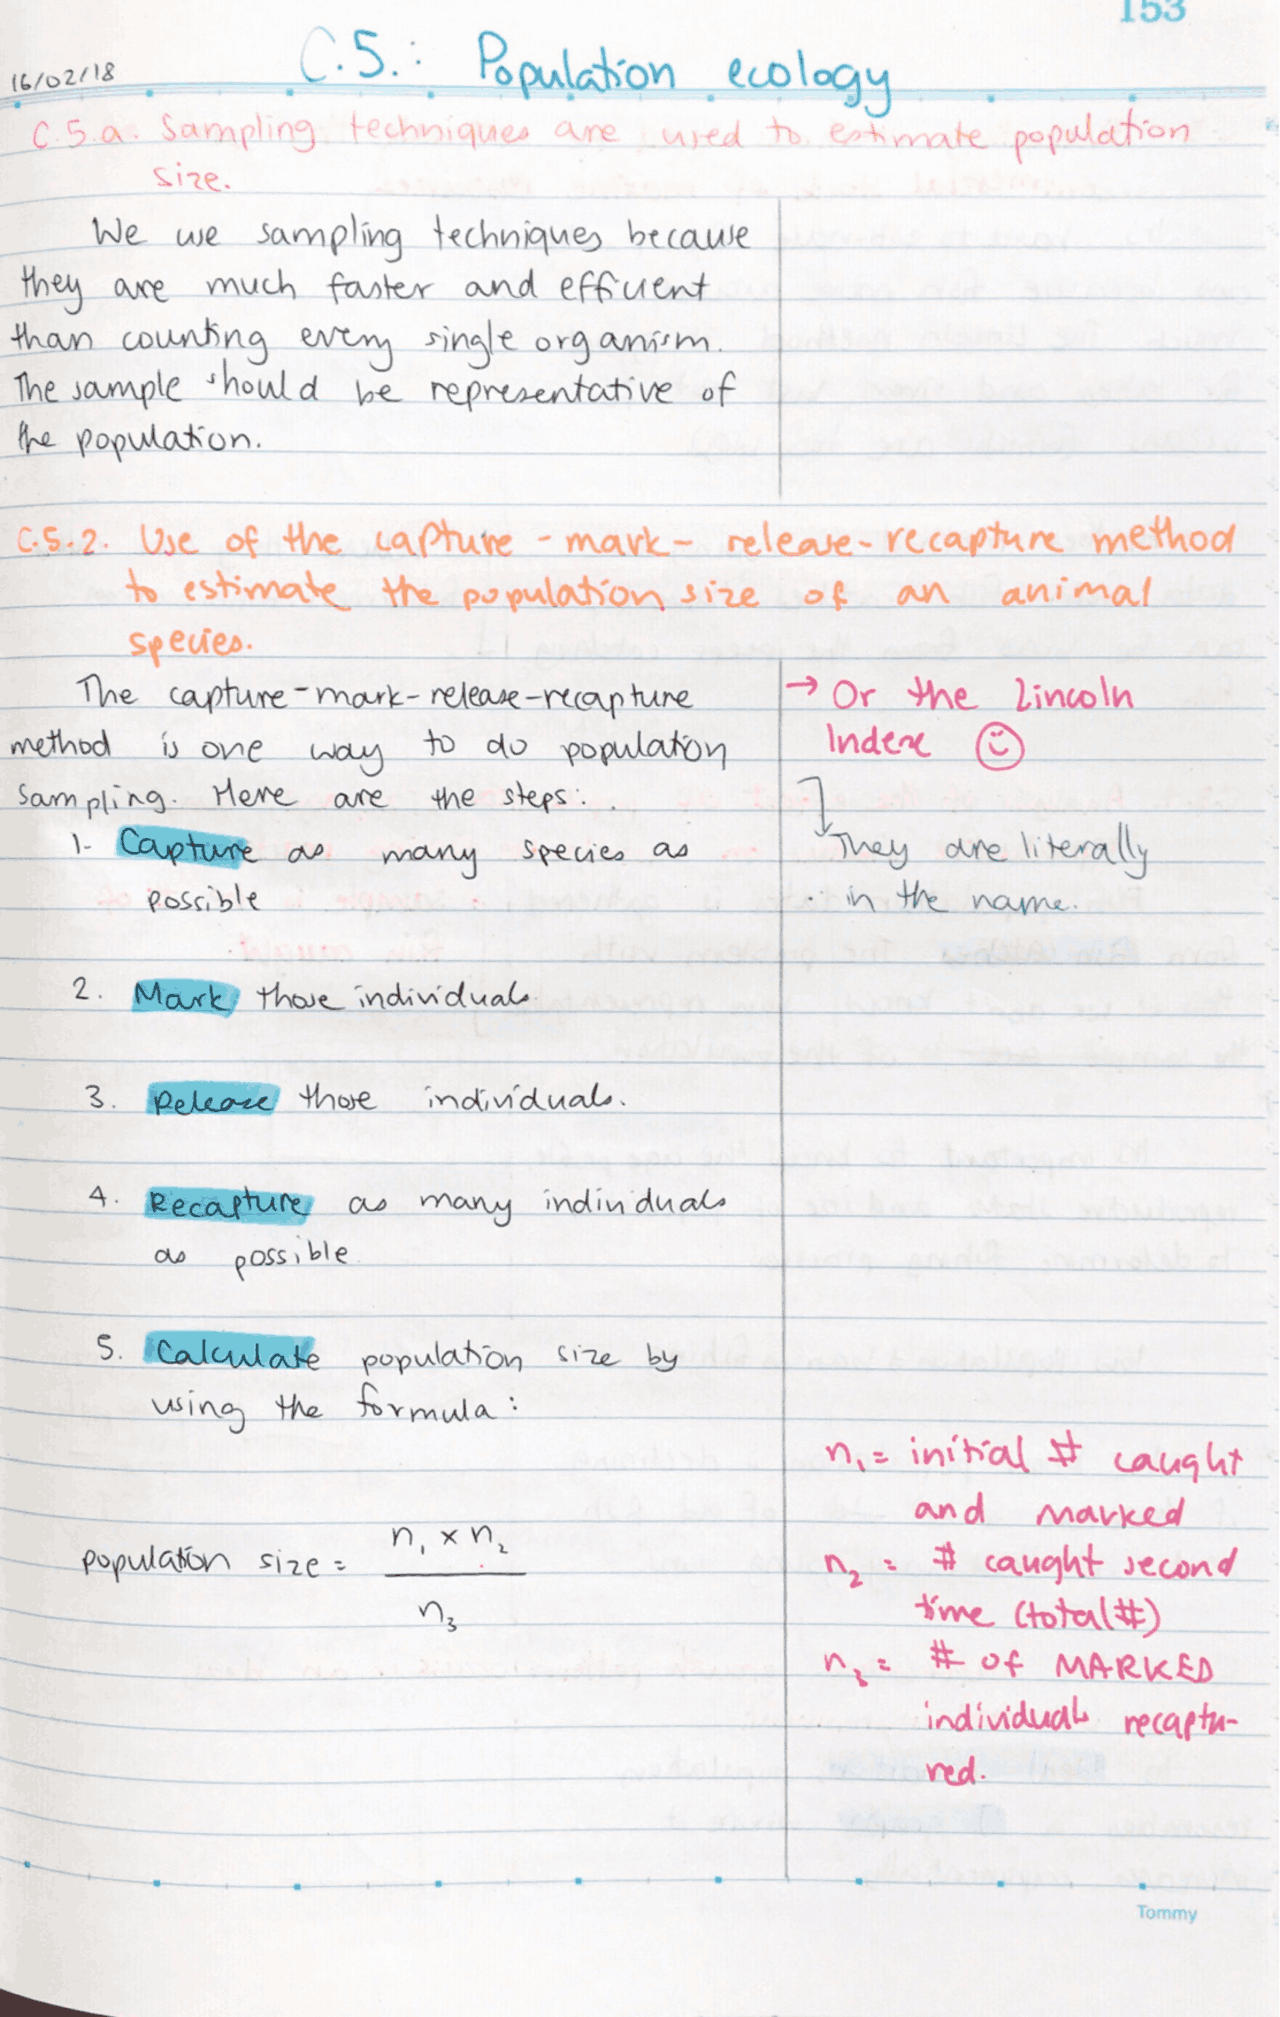 153
16/02/18
C.5.: Population ecology
C.5.a. Sampling techniques are used to estimate population
size.
We use sampling techniques because
they are much faster and efficient
than counting every single organism.
The sample should be representative of
the population.
C.5.2. Use of the capture-mark-release-recapture method
to estimate the population size of an animal
species.
The capture-mark-release-recapture
method is one way to do population
sampling. Here are the steps:
→ Or the Lincoln
Index
They are literally
in the name.
1- Capture as many species as
possible
2. Mark those individuals
3. Release those individuals.
4. Recapture as many individuals
as possible
5. Calculate population size by
using the formula:
population size = n₁ × n₂
n₃
n₁ = initial # caught
and marked
n₂ = # caught second
time (total #)
n₃ = # of MARKED
individuals recaptu-
red.
Tommy